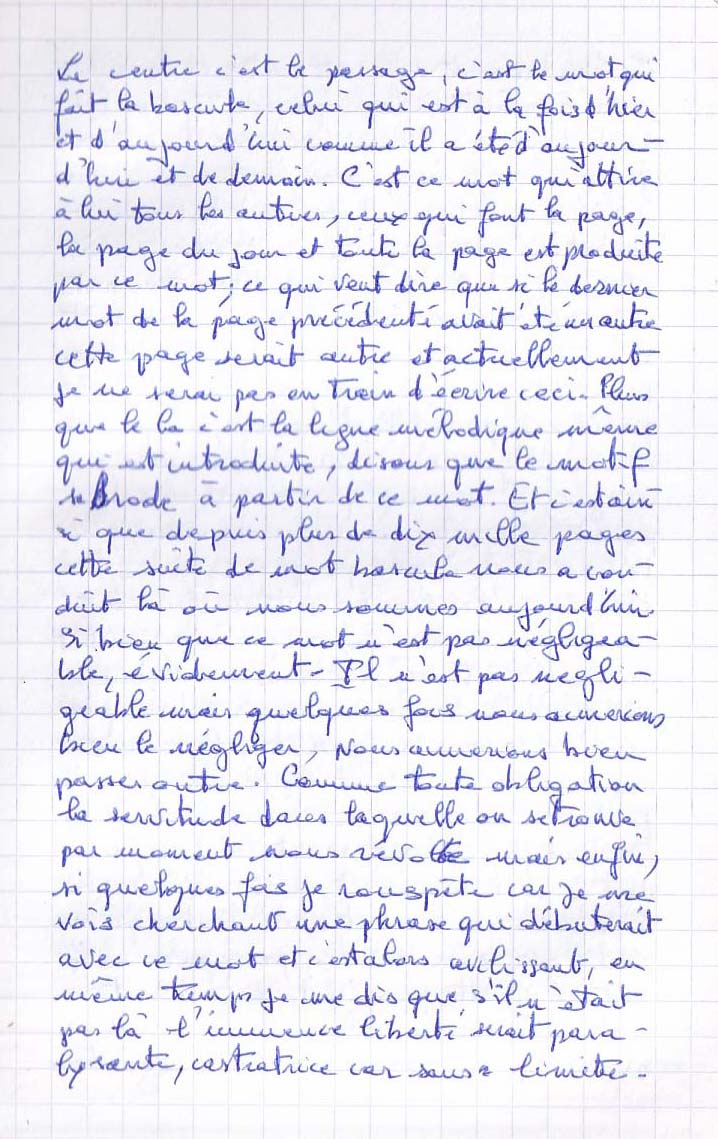 Le centre c'est le passage, c'est le mot qui
fait la bascule, celui qui est à la fois d'hier
et d'aujourd'hui comme il a été d'aujour-
d'hui et de demain. C'est ce mot qui attire
à lui tous les autres, ceux qui font la page,
la page du jour et toute la page est produite
par ce mot; ce qui veut dire que si le dernier
mot de la page précédente avait été un autre
cette page serait autre et actuellement
je ne serai pas en train d'écrire ceci. Plus
que le la c'est la ligne mélodique même
qui est introduite, disons que le motif
se brode à partir de ce mot. Et c'est ain
si que depuis plus de dix mille pages
cette suite de mot bascule nous a con-
duit là où nous sommes aujourd'hui.
Si bien que ce mot n'est pas négligea-
ble, évidement - Il n'est pas negli-
geable mais quelques fois nous aimerions
bien le négliger, nous aimerions bien
passer outre. Comme toute obligation
la servitude dans laquelle on se trouve
par moment nous révolte mais enfin,
si quelques fois je rouspète car je me
vois cherchant une phrase qui débuterait
avec ce mot et c'est alors avilissant, en
même temps je me dis que s'il n'était
pas là l'immence liberté serait para-
lysante, castratrice car sans limite.